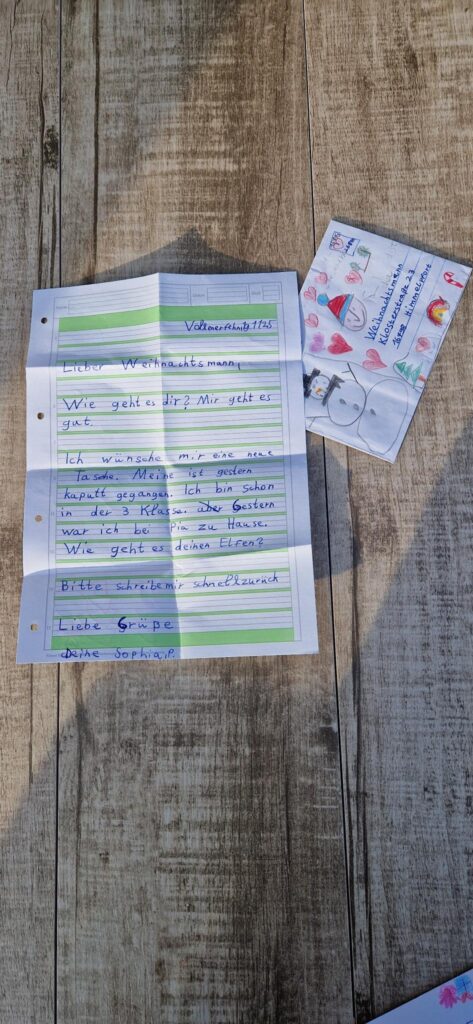 Lieber Weihnachtsmann,
Wie geht es dir? Mir geht es
gut.
Ich wünsche mir eine neue
Tasche. Meine ist gestern
kaputt gegangen. Ich bin schon
in der 3 Klasse. aber Gestern
war ich bei Pia zu Hause.
Wie geht es deinen Elfen?
Bitte schreibe mir schnell zurück
Liebe Grüße
Deine Sophia.P.
Weihnachtsmann
Klosterstraße 23
Himmelpfort